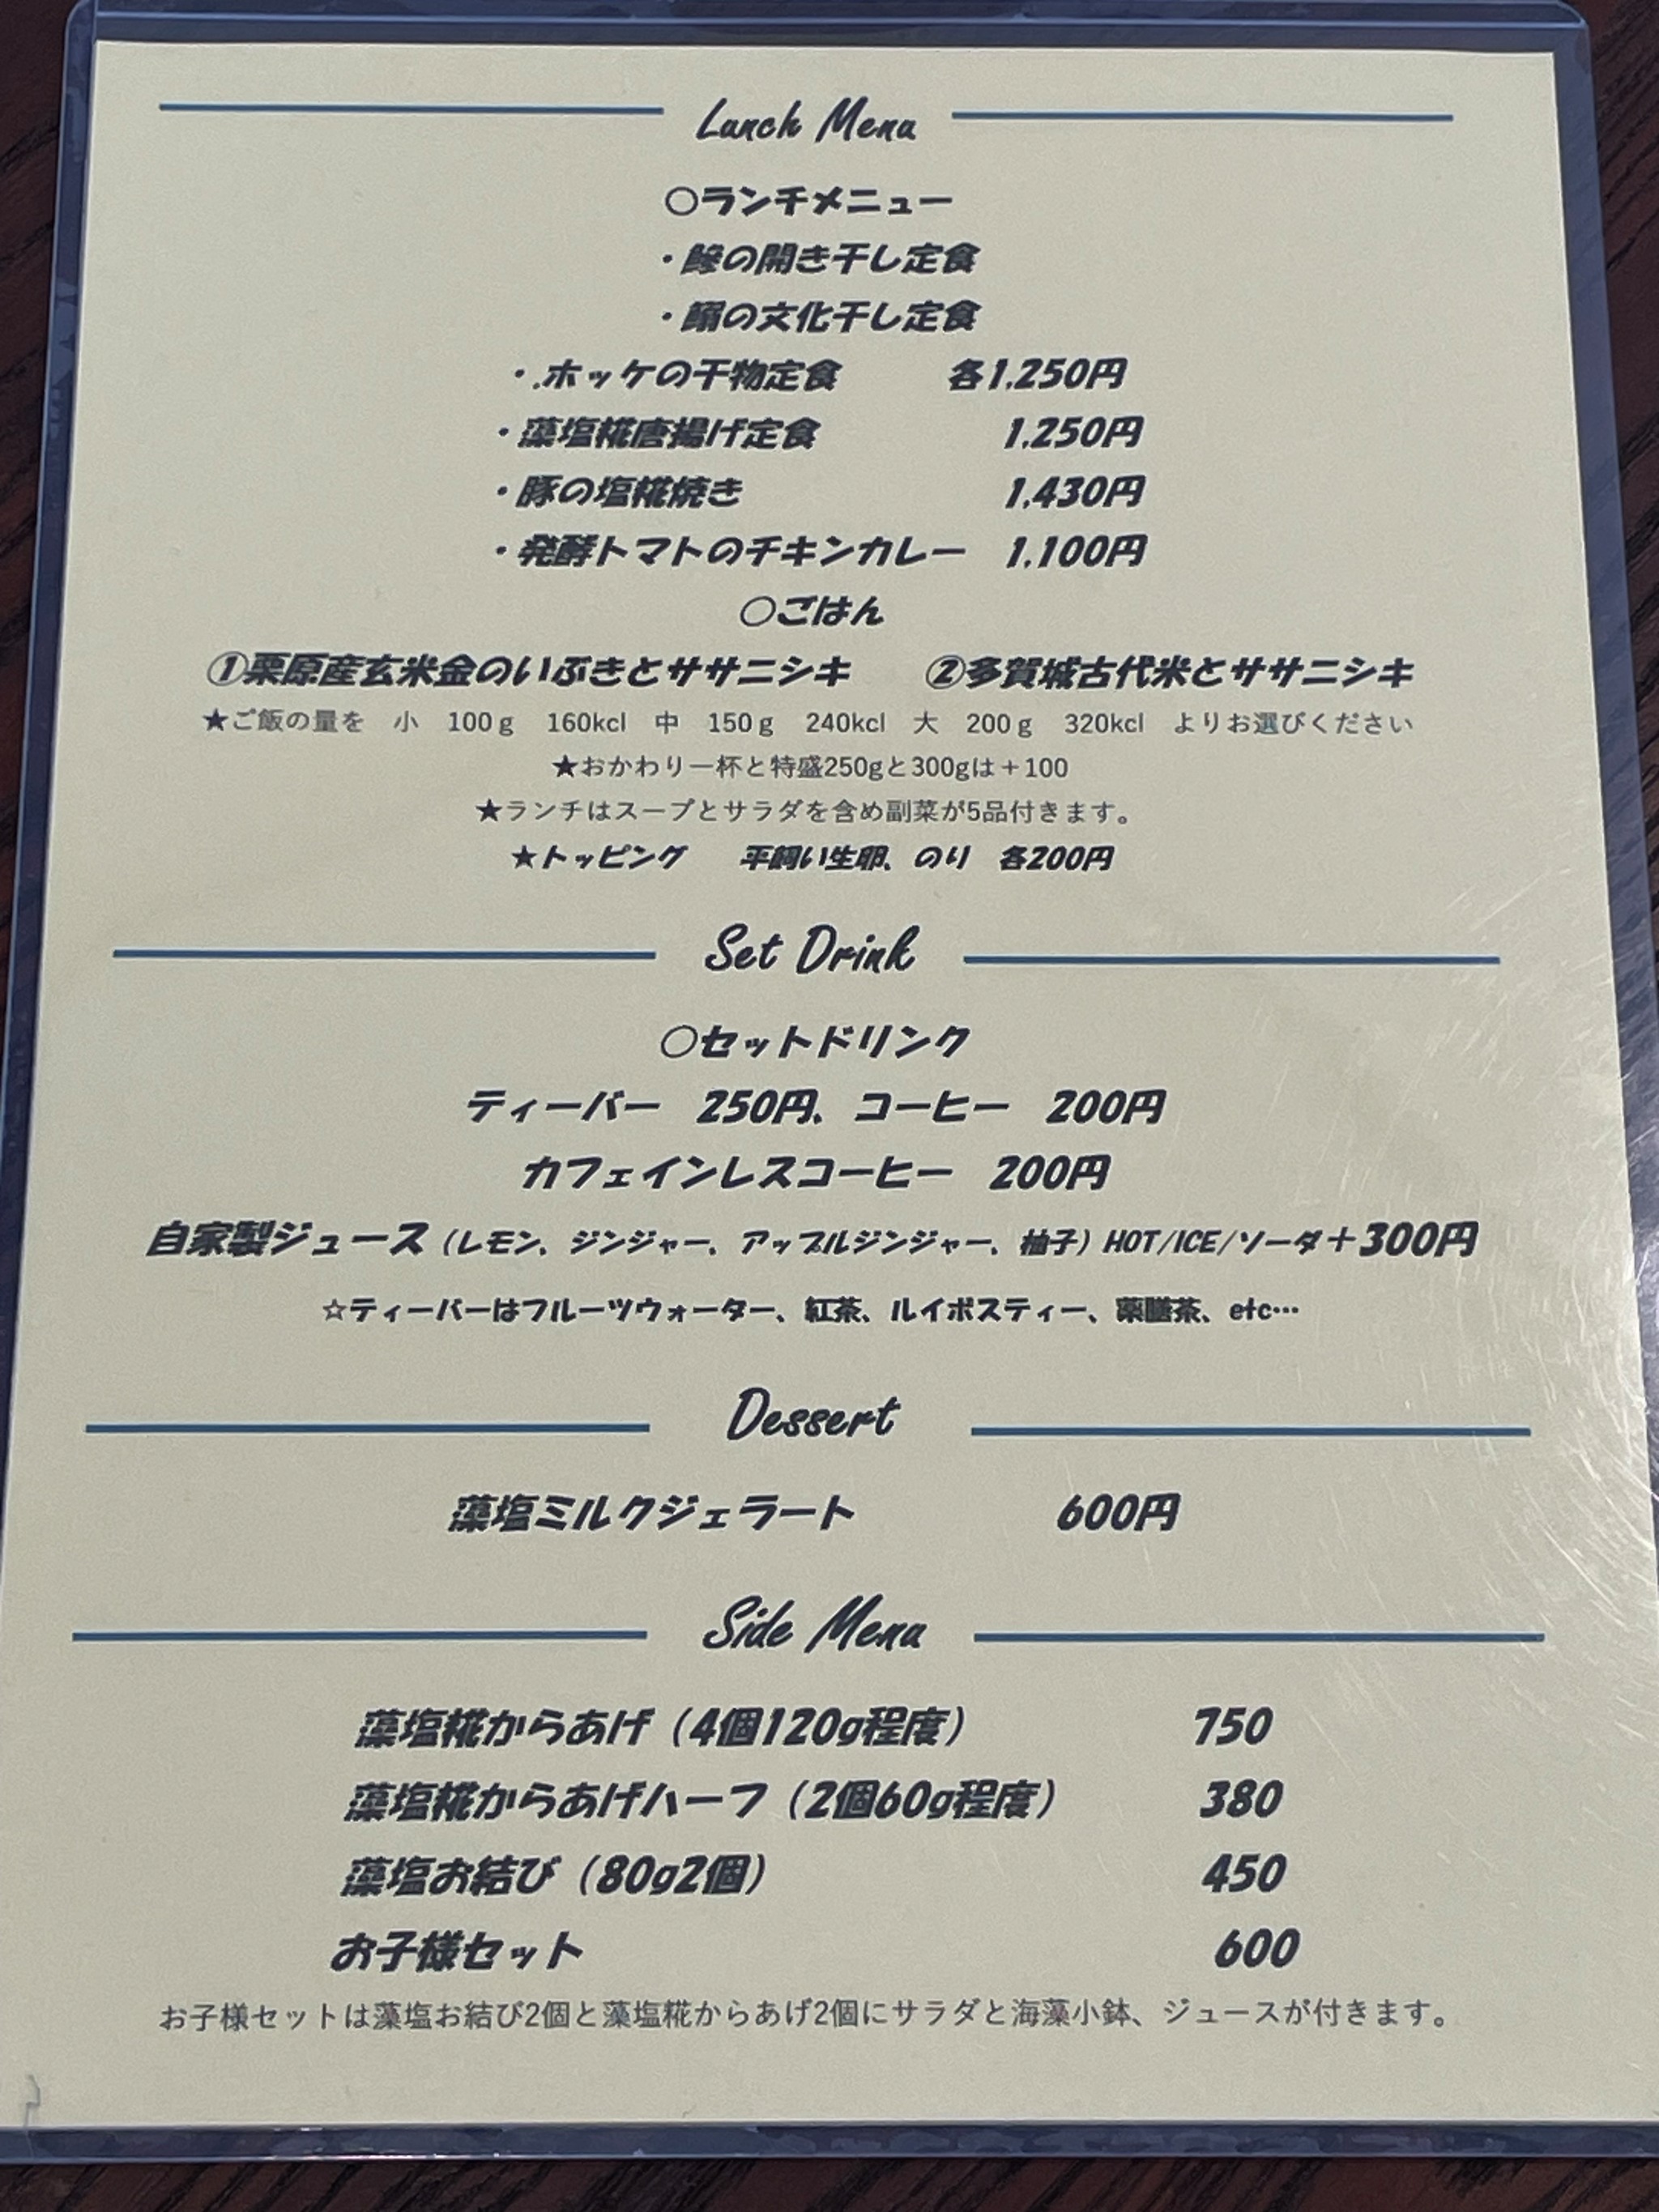 Lunch Menu
○ランチメニュー
・鯵の開き干し定食
・鰯の文化干し定食
・.ホッケの干物定食 各1,250円
・藻塩糀唐揚げ定食 1,250円
・豚の塩糀焼き 1,430円
・発酵トマトのチキンカレー 1,100円
○ごはん
①栗原産玄米金のいぶきとササニシキ ②多賀城古代米とササニシキ
★ご飯の量を 小 100g 160kcl 中 150g 240kcl 大 200g 320kcl よりお選びください
★おかわり一杯と特盛250gと300gは＋100
★ランチはスープとサラダを含め副菜が5品付きます。
★トッピング 平飼い生卵、のり 各200円
Set Drink
○セットドリンク
ティーバー 250円、コーヒー 200円
カフェインレスコーヒー 200円
自家製ジュース（レモン、ジンジャー、アップルジンジャー、柚子）HOT/ICE/ソーダ＋300円
☆ティーバーはフルーツウォーター、紅茶、ルイボスティー、薬膳茶、etc…
Dessert
藻塩ミルクジェラート 600円
Side Menu
藻塩糀からあげ（4個120g程度） 750
藻塩糀からあげハーフ（2個60g程度） 380
藻塩お結び（80g2個） 450
お子様セット 600
お子様セットは藻塩お結び2個と藻塩糀からあげ2個にサラダと海藻小鉢、ジュースが付きます。